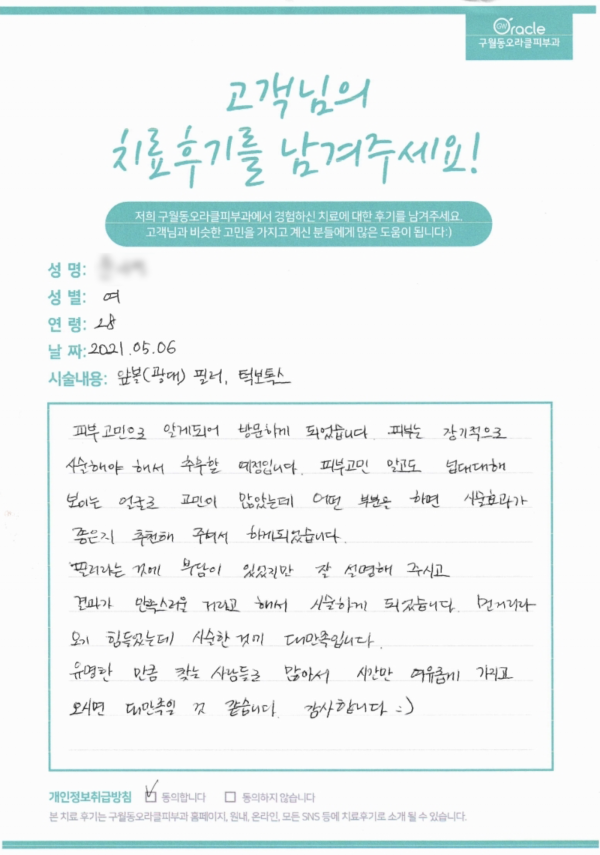 Oracle
구월동오라클피부과
고객님의
치료후기를 남겨주세요!
저희 구월동오라클피부과에서 경험하신 치료에 대한 후기를 남겨주세요.
고객님과 비슷한 고민을 가지고 계신 분들에게 많은 도움이 됩니다:)
성 명:
성 별: 여
연 령: 28
날 짜: 2021.05.06
시술내용: 앞볼(광대) 필러, 턱보톡스
피부고민으로 알게되어 방문하게 되었습니다. 피부는 장기적으로
시술해야 해서 추후할 예정입니다. 피부고민 말고도 넙대대해
보이는 얼굴로 고민이 많았는데 어떤 부분을 하면 시술효과가
좋은지 추천해 주셔서 하게되었습니다.
필러라는 것에 부담이 있었지만 잘 설명해 주시고
결과가 만족스러울 거라고 해서 시술하게 되었습니다. 먼거리라
오기 힘들었는데 시술한 것이 대만족입니다.
유명한 만큼 찾는 사람들도 많아서 시간만 여유롭게 가지고
오시면 대만족일 것 같습니다. 감사합니다 :)
개인정보취급방침 ☑ 동의합니다 ☐ 동의하지 않습니다
본 치료 후기는 구월동오라클피부과 홈페이지, 원내, 온라인, 모든 SNS 등에 치료후기로 소개 될 수 있습니다.